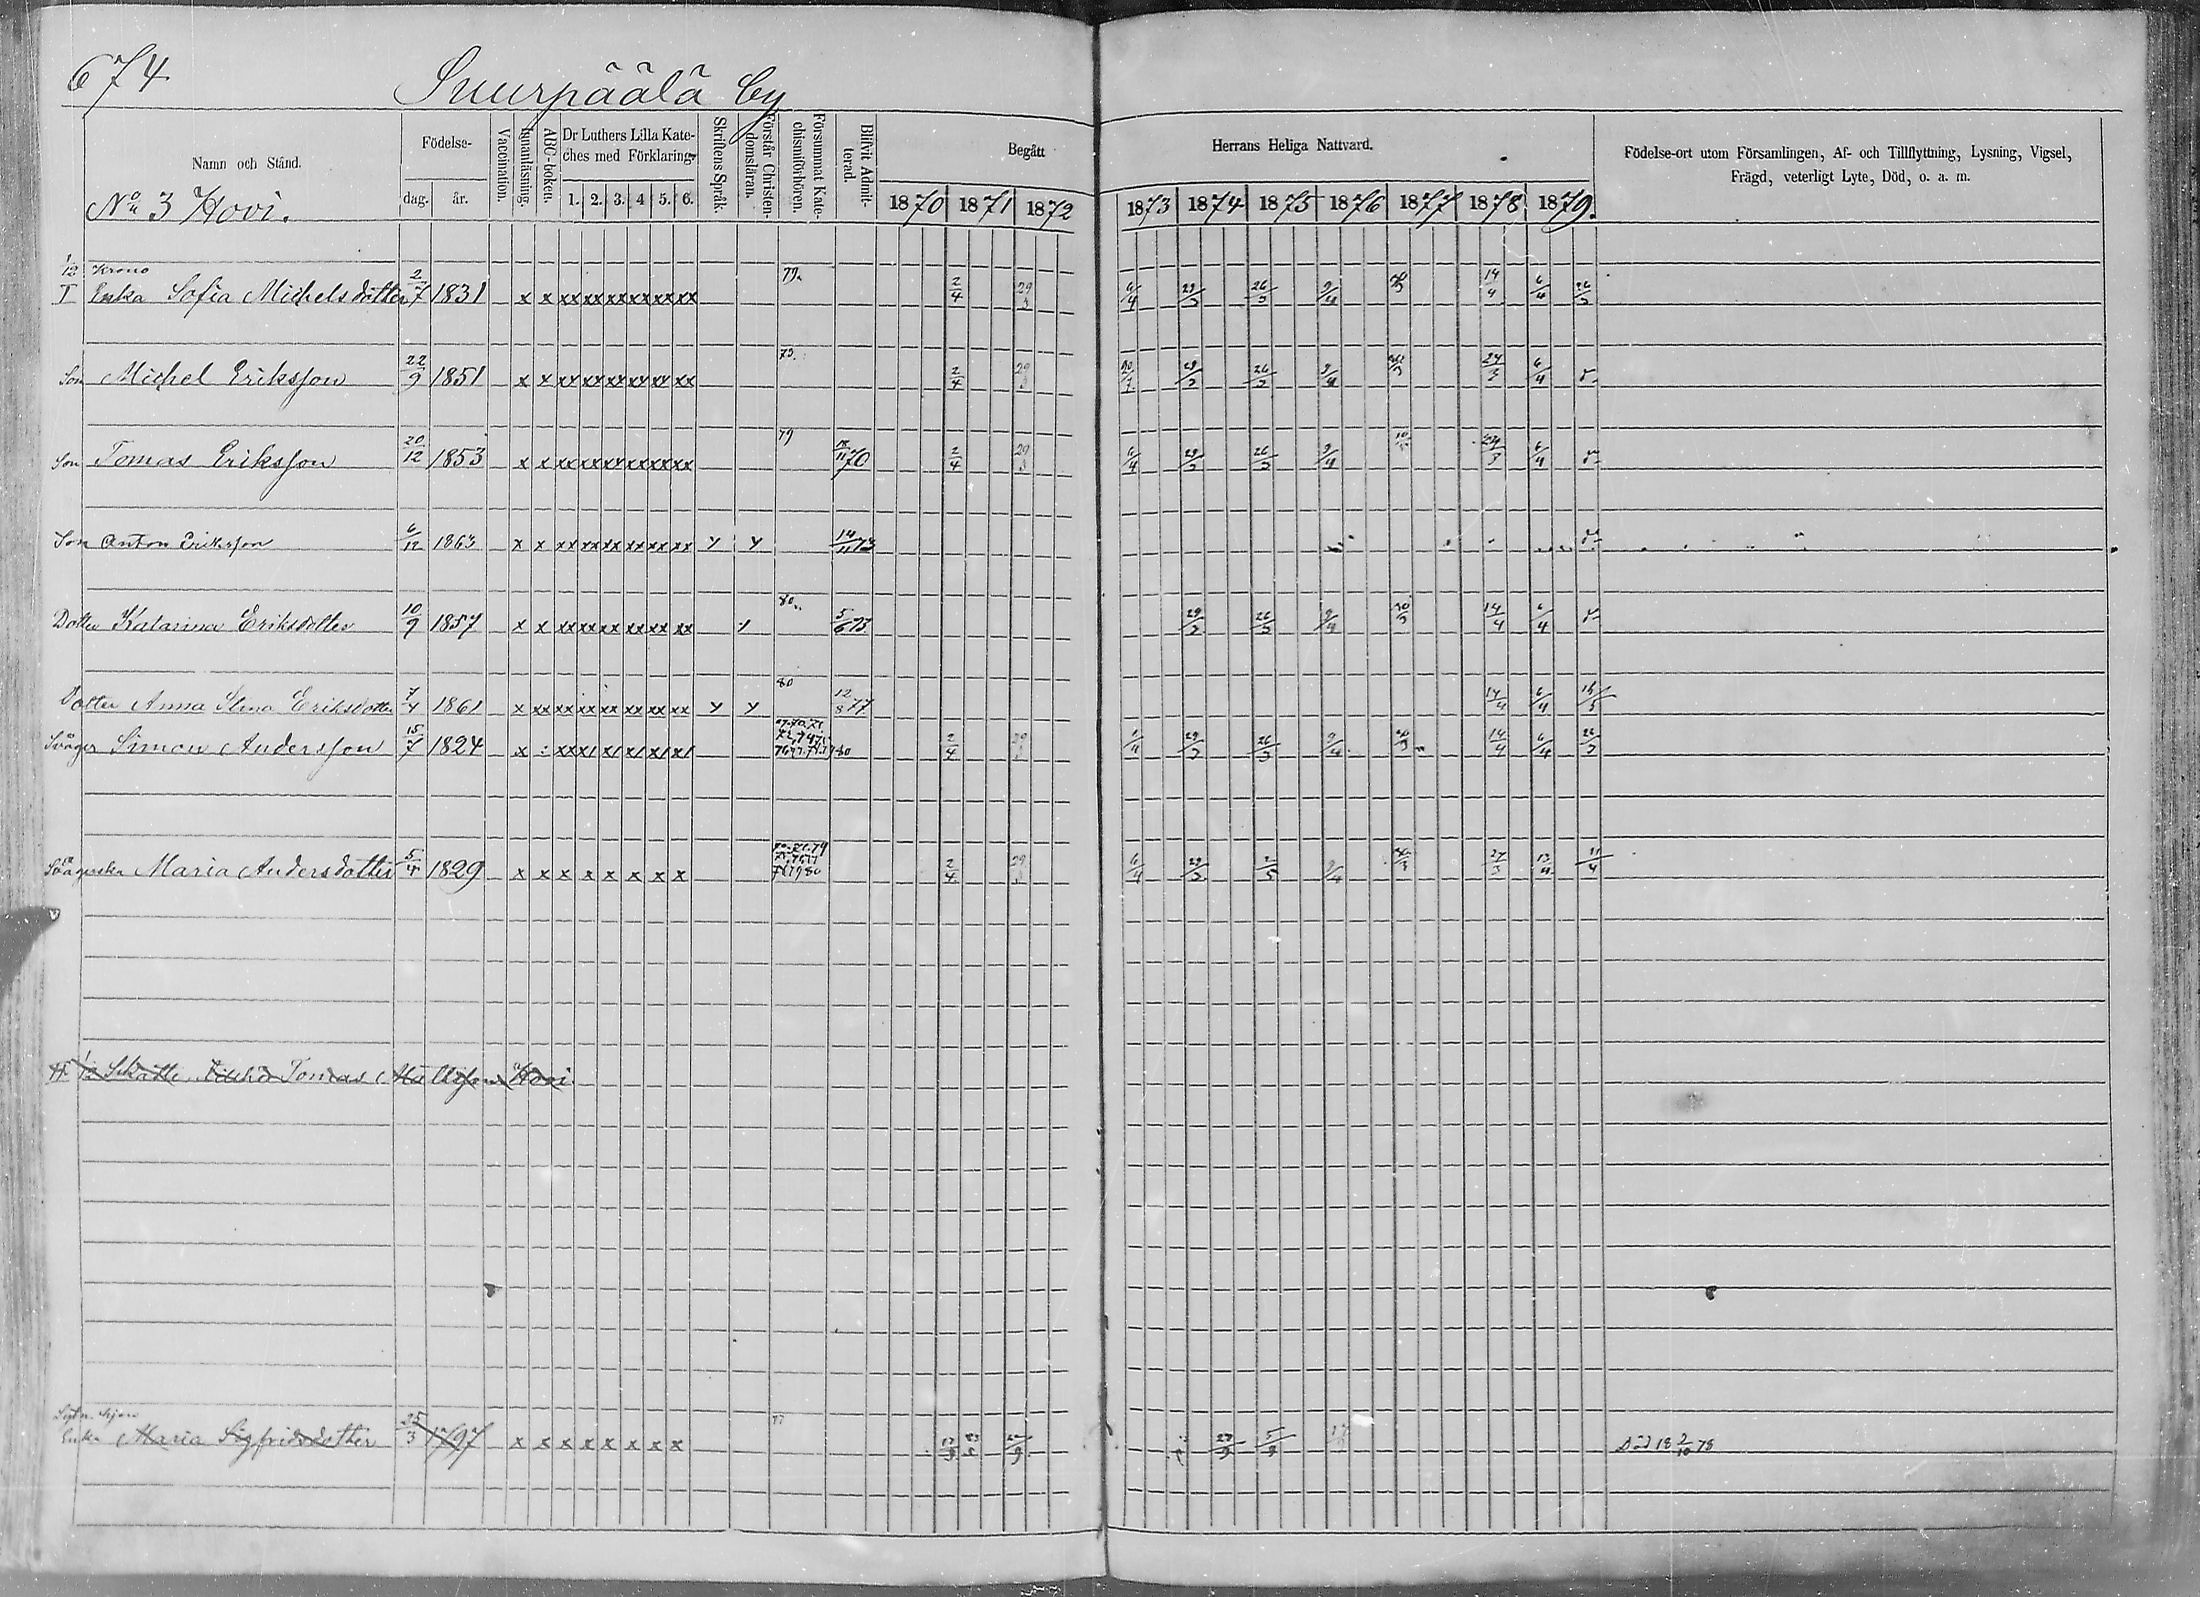 674
Suurpäälä by
Namn och Stånd.
Födelse-
dag. år.
Vaccination.
Innanläsning.
ABC-boken.
Dr Luthers Lilla Kate-
ches med Förklaring.
1. 2. 3. 4 5. 6.
Skriftens Språk.
Förstår Christen-
domsläran.
Försummat Kate-
chismiförhören.
Blifvit Admit-
terad.
Begått
Herrans Heliga Nattvard.
1870 1871 1872
1873 1874 1875 1876 1877 1878 1879.
Födelse-ort utom Församlingen, Af- och Tillflyttning, Lysning, Vigsel,
Frägd, veterligt Lyte, Död, o. a. m.
No 3 Hovi.
1/12 Krono
I Enka Sofia Michelsdotter 2/7 1831 x x xx xx xx xx xx xx 79. 2/4 29/3 6/4 29/3 26/3 9/4 14/4 6/4 26/3
Son Michel Eriksson 22/9 1851 x x xx xx xx xx xx xx 2/4 29/3 29/3 26/3 9/4 24/3 6/4
Son Tomas Eriksson 20/12 1853 x x xx xx xx xx xx xx 79 70 2/4 29/3 6/4 29/3 26/3 9/4 24/3 6/4
Son Anton Eriksson 6/12 1863 x x xx xx xx xx xx xx y y 14/11
Dotter Katarina Eriksdotter 10/9 1857 x x xx xx xx xx xx xx 80 5/6 73 29/3 26/3 9/4 14/4 6/4
Dotter Anna Stina Eriksdotter 7/4 1861 x xx xx xx xx xx xx xx y y 80 12/8 77 14/4 6/4
Svåger Simon Andersson 15/7 1824 2/4 29/3 29/3 26/3 9/4 14/4 6/4 26/3
Svägerska Maria Andersdotter 5/4 1829 x x x x x x x x 2/4 29/3 6/4 29/3 2/5 9/4 24/3 13/4 11/4
II 1/12 Skatte Tomas Hovi.
Enka Maria Sigfridsdotter 25/3 1797 x x x x x x x x
Död 18 2/10 78